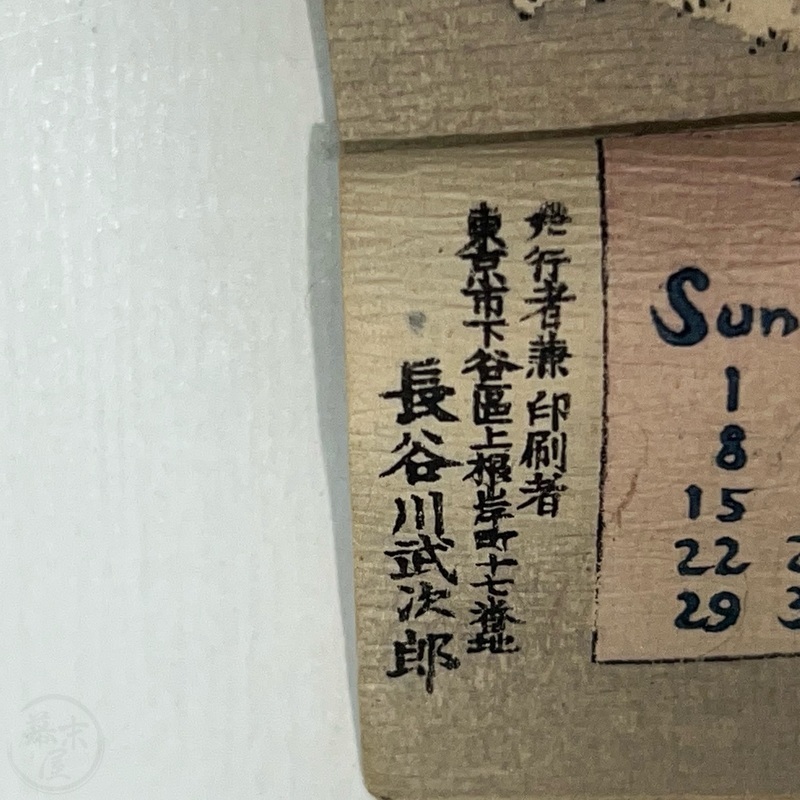 発行者兼印刷者
東京市下谷區上根岸町十七番地
長谷川武次郎
Sun
1
8
15
22 2
29 3
幕末屋